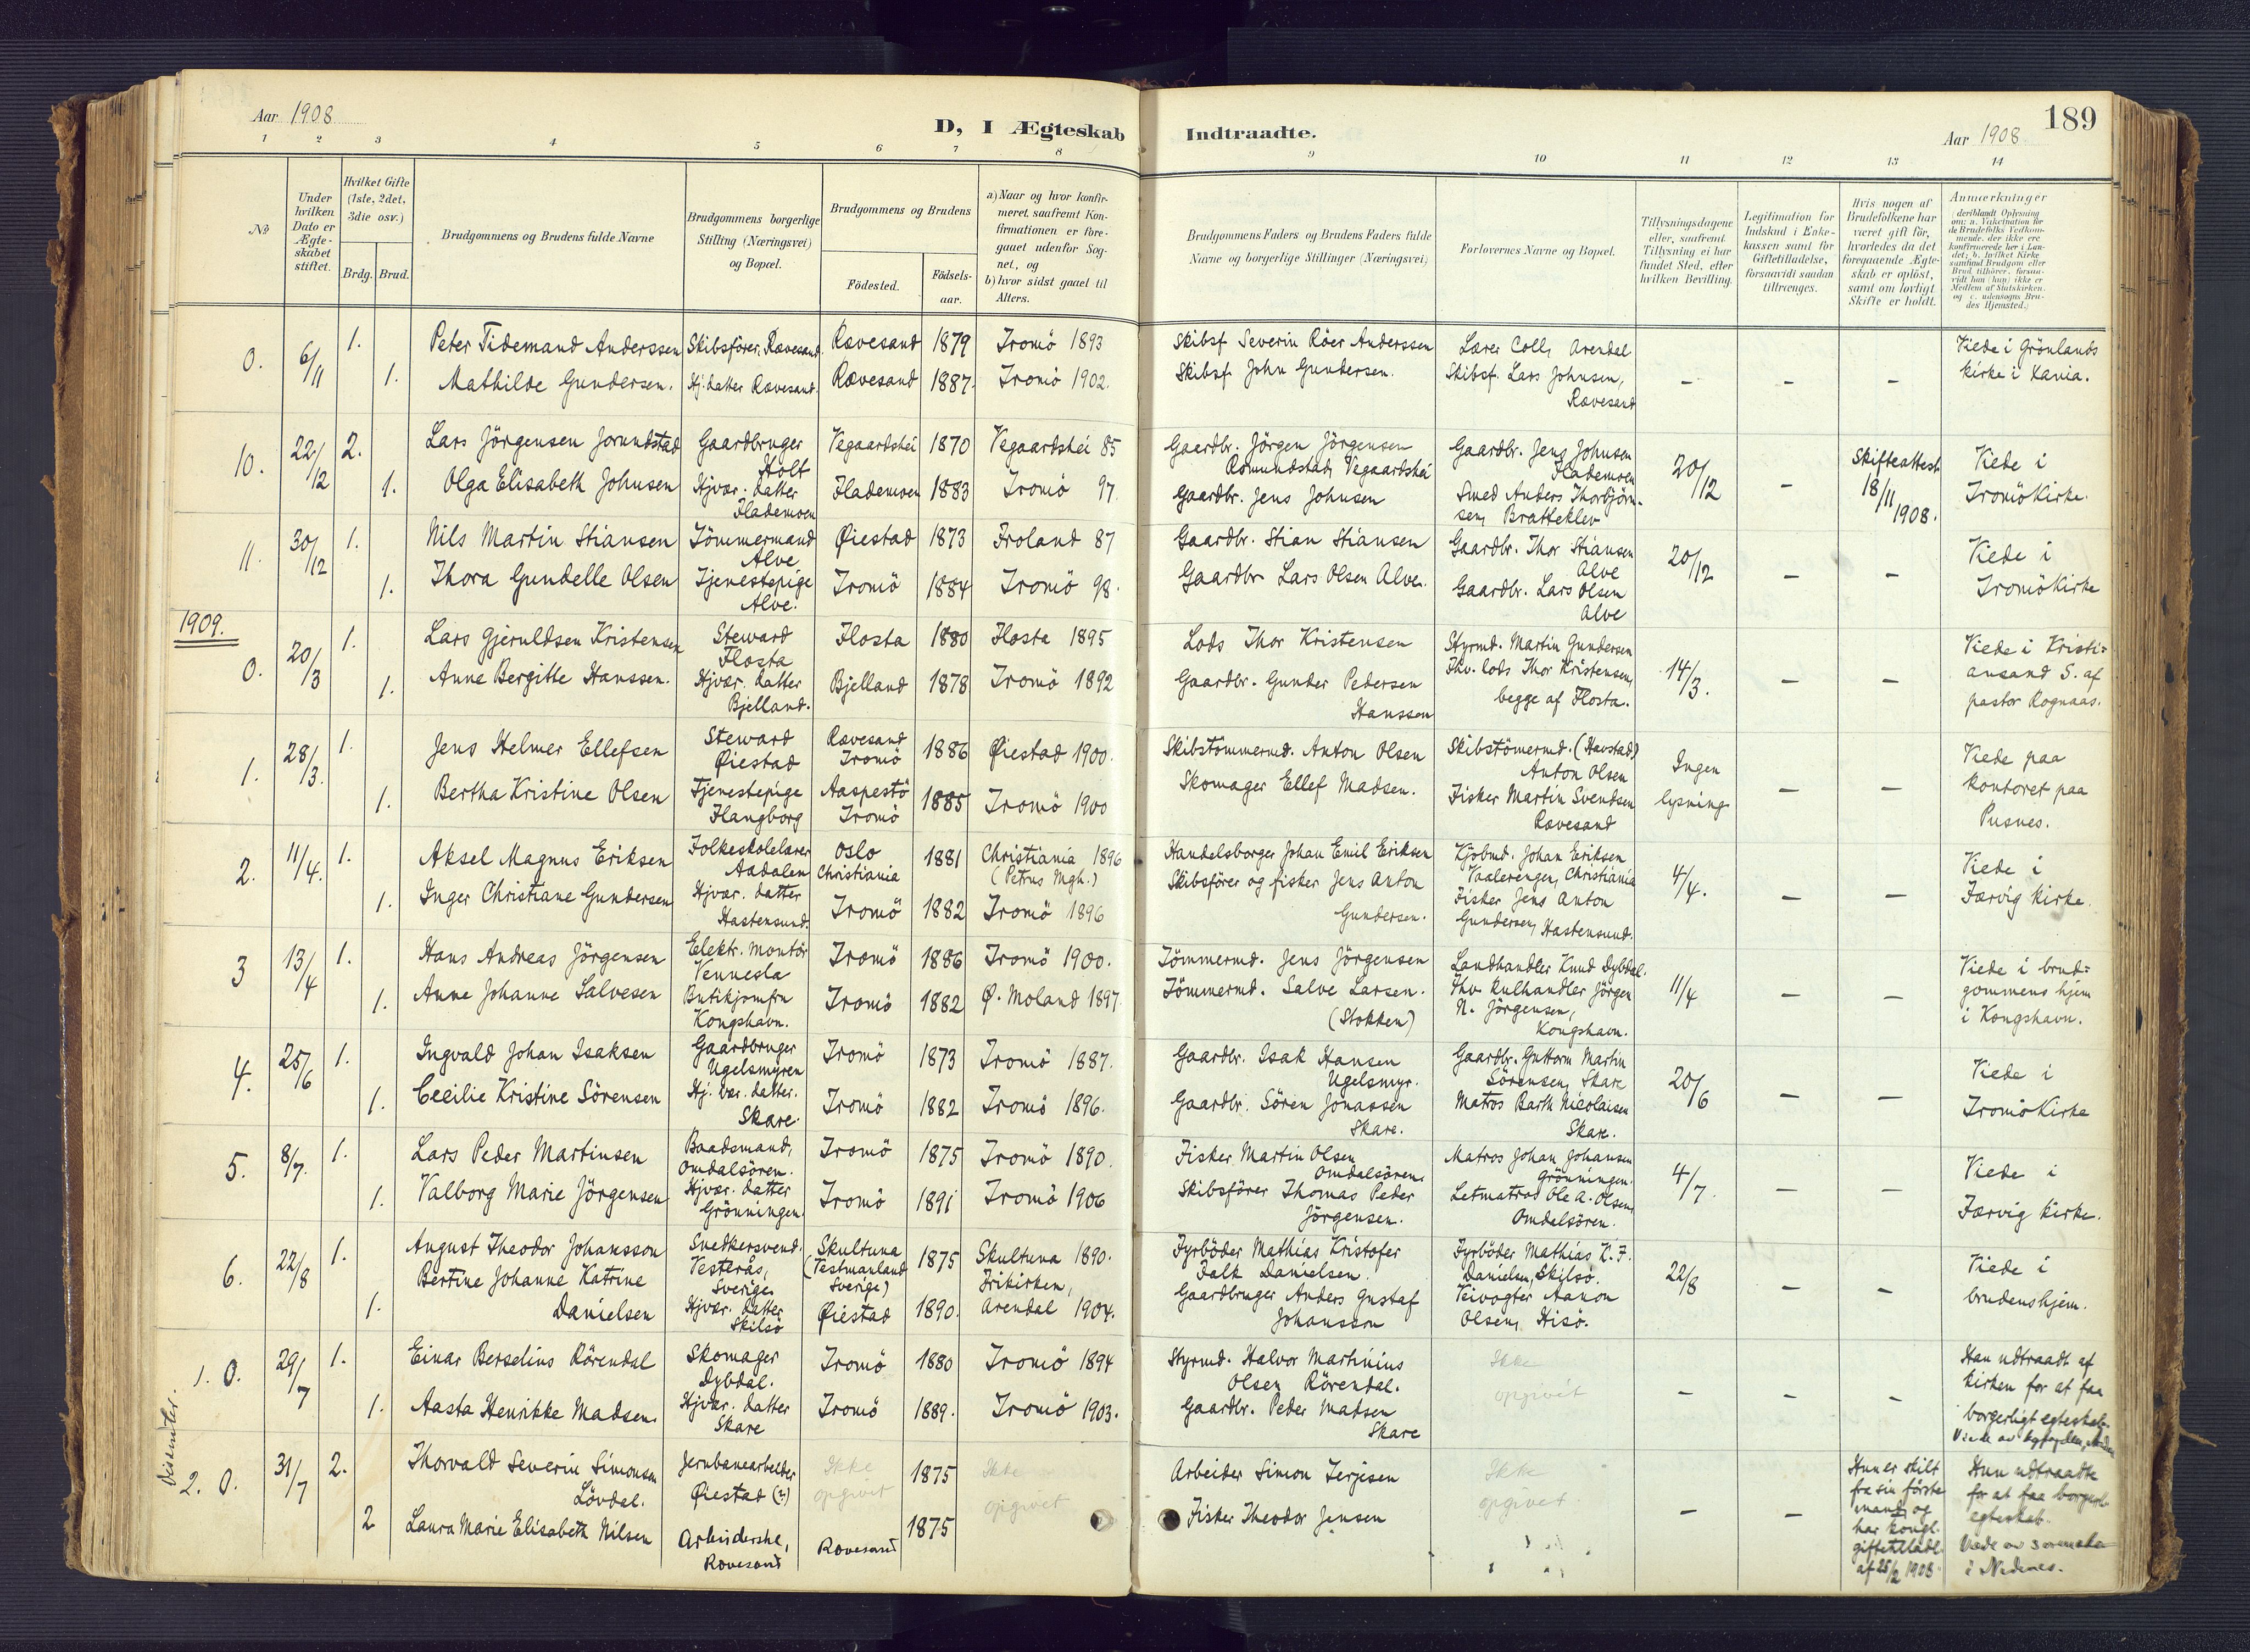 Aar 1908
D, I Ægteskab Indtraadte.
Aar 1908
189
1 2 3 4 5 6 7 8 9 10 11 12 13 14
No
Under hvilken Dato er Ægte-skabet stiftet.
Hvilket Gifte (1ste, 2det, 3die osv.)
Brdg. Brud.
Brudgommens og Brudens fulde Navne
Brudgommens borgerlige Stilling (Næringsvei) og Bopæl.
Brudgommens og Brudens
Födested.
Födsels-aar.
a) Naar og hvor konfir-meret, saafremt Kon-firmationen er fore-gaaet udenfor Sog-net, og
b) hvor sidst gaaet til Alters.
Brudgommens Faders og Brudens Faders fulde Navne og borgerlige Stillinger (Næringsvei)
Forlovernes Navne og Bopæl.
Tillysningsdagene eller, saafremt Tillysning ei har fundet Sted, efter hvilken Bevilling.
Legitimation for Indskud i Enke-kassen samt for Giftetilladelse, forsaavidt saadan tiltrænges.
Hvis nogen af Brudefolkene har været gift för, hvorledes da det foregaaende Ægte-skab er oplöst, samt om lovligt Skifte er holdt.
Anmerkninger
(deriblandt Oplysning om: a. Vakcination for de Brudefolks Vedkom-mende, der ikke ere konfirmerede her i Lan-det; b. hvilket Kirke-samfund Brudgom eller Brud tilhörer, forsaa-vidt han (hun) ikke er Medlem af Statskirken, og c. udensogns Bru-des Hjemsted.)
0. 6/11 1. Peter Tidemand Anderssen Skibsförer, Rævesand. Rævesand 1879 Tromö 1893 Skibsf Severin Röer Anderssen Lærer Coll, Arendal Viede i Grönlands
1. Mathilde Gundersen. Hj. datter Rævesand. Rævesand 1887. Tromö 1902. Skibsf John Gundersen. Skibsf. Lars Johnsen, Rævesand – – – kirke i Xania.
10. 22/12 2. Lars Jörgensen Jorundstad Gaardbruger Holt Vegaardshei 1870 Vegaardshei 85 Gaardbr. Jörgen Jörgensen Romundstad, Vegaardshei Gaardbr. Jens Johnsen Flademoen 20/12 – Skifteattest 18/11 1908. Viede i
1. Olga Elisabeth Johnsen Hjvær. datter Flademoen Flademoen 1883 Tromö 97. Gaardbr. Jens Johnsen Smed Anders Thorbjörn-sen, Bratteklev Tromö Kirke.
11. 30/12 1. Nils Martin Stiansen Tömmermand Alve Øiestad 1873 Froland 87 Gaardbr. Stian Stiansen Gaardbr. Thor Stiansen Alve 20/12 – – Viede i
1. Thora Gundelle Olsen Tjenestepige Alve. Tromö 1884 Tromö 98. Gaardbr Lars Olsen Alve. Gaardbr. Lars Olsen Alve Tromö Kirke
1909.
0. 20/3 1. Lars Gjeruldsen Kristensen Steward Flosta Flosta 1880 Flosta 1895 Lods Thor Kristensen Styrmd. Martin Gundersen 14/3. – – Viede i Kristi-
1. Anne Bergitte Hanssen. Hjvær. datter Bjelland. Bjelland 1878 Tromö 1892 Gaardbr. Gunder Pedersen Hanssen Fhv. lods Thor Kristensen, begge af Flosta. ansand S. af pastor Rognaas.
1. 28/3. 1. Jens Helmer Ellefsen Steward Øiestad Rævesand Tromö 1886 Øiestad 1900. Skibstömmermd. Anton Olsen Skibstömermd. (Havstad) Anton Olsen Ingen lysning – – Viede paa
1. Bertha Kristine Olsen Tjenestepige Flangborg Aaspestö Tromö 1885 Tromö 1900 Skomager Ellef Madsen. Fisker Martin Svendsen Rævesand kontoret paa Pusnes.
2. 11/4. 1. Aksel Magnus Eriksen Folkeskolelærer Aadalen Oslo Christiania 1881 Christiania 1896 (Petrus Mgh.) Handelsborger Johan Emil Eriksen Kjöbmd. Johan Eriksen Vaalerengen, Christiania 4/4. – – Viede i
1. Inger Christiane Gundersen Hjvær. datter Hastensund. Tromö 1882 Tromö 1896 Skibsförer og fisker Jens Anton Gundersen. Fisker Jens Anton Gundersen, Hastensund. Færvig kirke.
3 13/4 1. Hans Andreas Jörgensen Elektr. montör Vennesla Tromö 1886 Tromö 1900. Tömmermd. Jens Jörgensen Landhandler Knud Dybdal. 11/4 – – Viede i brud-
1. Anne Johanne Salvesen Butikjomfru Kongshavn. Tromö 1882 Ø. Moland 1897. Tömmermd. Salve Larsen. (Stokken) Fhv kulhandler Jörgen N. Jörgensen, Kongshavn. gommens hjem i Kongshavn.
4. 25/6 1. Ingvald Johan Isaksen Gaardbruger Ugelsmyren Tromö 1873 Tromö 1887. Gaardbr. Isak Hansen Ugelsmyr. Gaardbr. Guttorm Martin Sörensen, Skare 20/6 – – Viede i
1. Cecilie Kristine Sörensen Hj. vær. datter. Skare. Tromö 1882 Tromö 1896. Gaardbr. Sören Jonassen Skare. Matros Barth Nicolaisen Skare. Tromö Kirke
5. 8/7. 1. Lars Peder Martinsen Baadsmand, Omdalsören. Tromö 1875 Tromö 1890. Fisker Martin Olsen Omdalsören. Matros Johan Johansen Grönningen. 4/7. – – Viede i
1. Valborg Marie Jörgensen Hjvær. datter Grönningen. Tromö 1891 Tromö 1906 Skibsförer Thomas Peder Jörgensen. Letmatros Ole A. Olsen, Omdalsören. Færvig kirke.
6. 22/8 1. August Theodor Johansson Snedkersvend. Vesterås, Sverige. Skultuna (Vestmanland Sverige) 1875 Skultuna 1890. Fyrböder Mathias Kristofer Falk Danielsen. Fyrböder Mathias K. F. Danielsen, Skilsö. 22/8 – – Viede i
1. Bertine Johanne Katrine Danielsen Hjvær. datter Skilsö Øiestad 1890. Frikirken, Arendal 1904. Gaardbruger Anders Gustaf Johansson Veivogter Aanon Olsen, Hisö. brudens hjem.
Dissenter.
1. 0. 29/7 1. Einar Berselius Rörendal Skomager Dybdal. Tromö 1880 Tromö 1894 Styrmd. Halvor Martinius Olsen Rörendal. Ikke opgivet – – – Han udtraadt af kirken for at faa
1. Aasta Henrikke Madsen. Hjvær. datter Skare Tromö 1889. Tromö 1903. Gaardbr. Peder Madsen Skare borgerligt egteskab. Viede av
2. 0. 31/7 2. Thorvald Severin Simonsen Lövdal. Jernbanearbeider Øiestad (?) Ikke opgivet 1875 Ikke opgivet Arbeider Simon Terjesen Ikke opgivet – – Hun er skilt fra sin förste mand og har kongl. giftetillad. af 25/2 1908. Hun udtraadte for at faa borgerl. egteskab.
2 Laura Marie Elisabeth Nilsen Arbeiderske, Rævesand Rævesand 1875 Fisker Theodor Jensen Viede av i Nedenes.